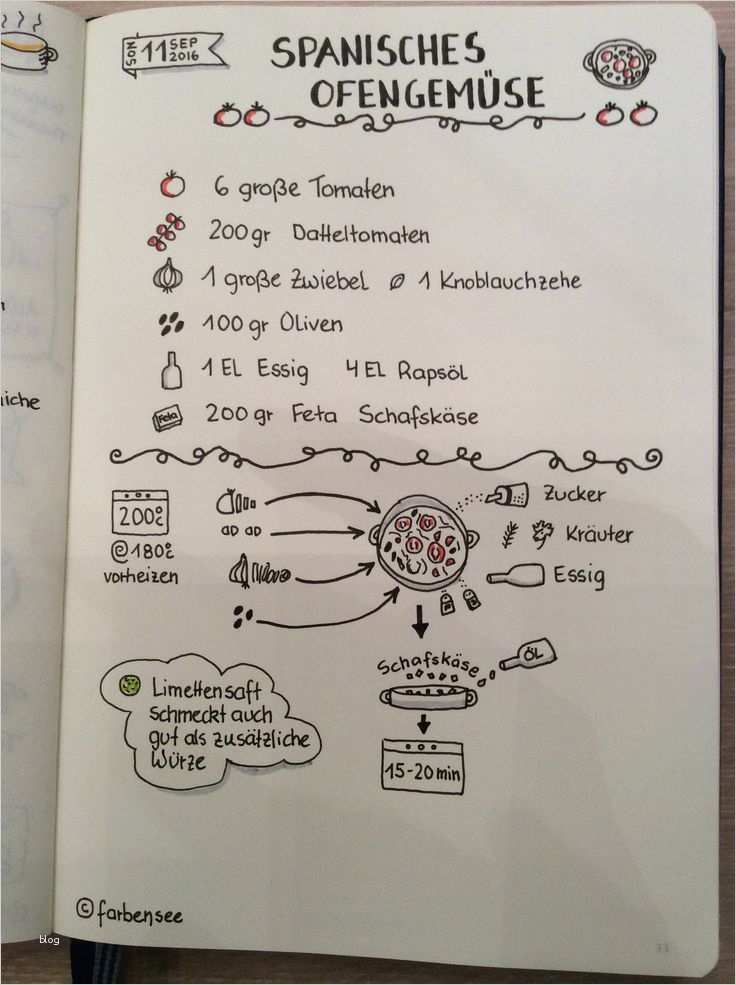 SON 11 SEP 2016
SPANISCHES
OFENGEMÜSE
6 große Tomaten
200gr Datteltomaten
1 große Zwiebel 1 Knoblauchzehe
100gr Oliven
1 EL Essig 4 EL Rapsöl
Feta
200gr Feta Schafskäse
200°C
@180°C
vorheizen
Zucker
Kräuter
Essig
Schafskäse
ÖL
15-20 min
Limettensaft
schmeckt auch
gut als zusätzliche
Würze
iche
© farbensee
blog
33